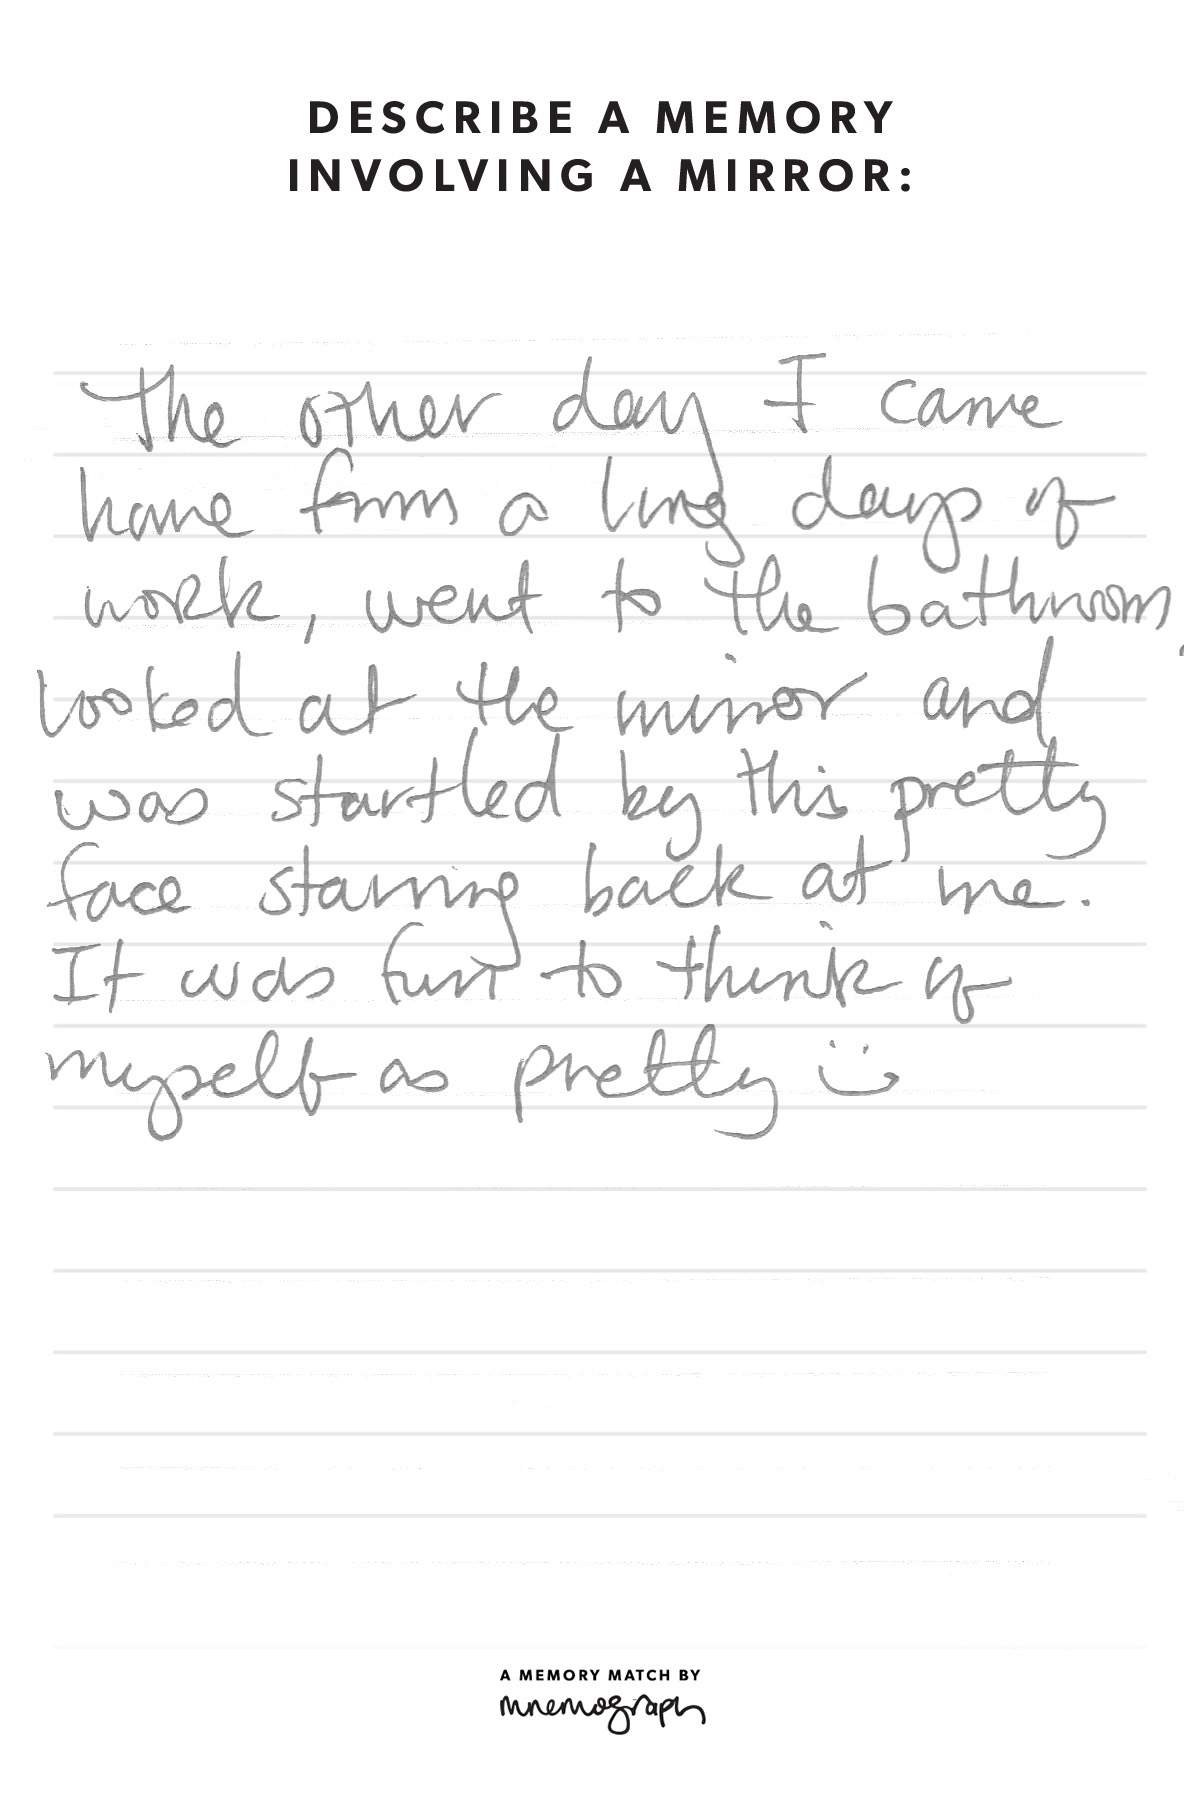 DESCRIBE A MEMORY
INVOLVING A MIRROR:
The other day I came
home from a long days of
work, went to the bathroom,
looked at the mirror and
was startled by this pretty
face starring back at me.
It was fun to think of
myself as pretty :)
A MEMORY MATCH BY
mnemograph